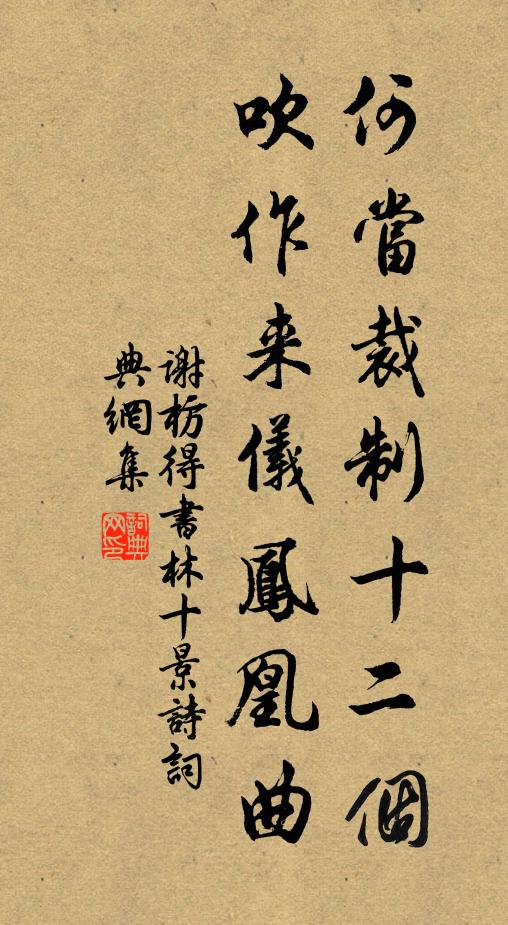 何當裁制十二個
吹作来儀鳳凰曲
谢枋得書林十景詩詞
典網集
詞典
网印